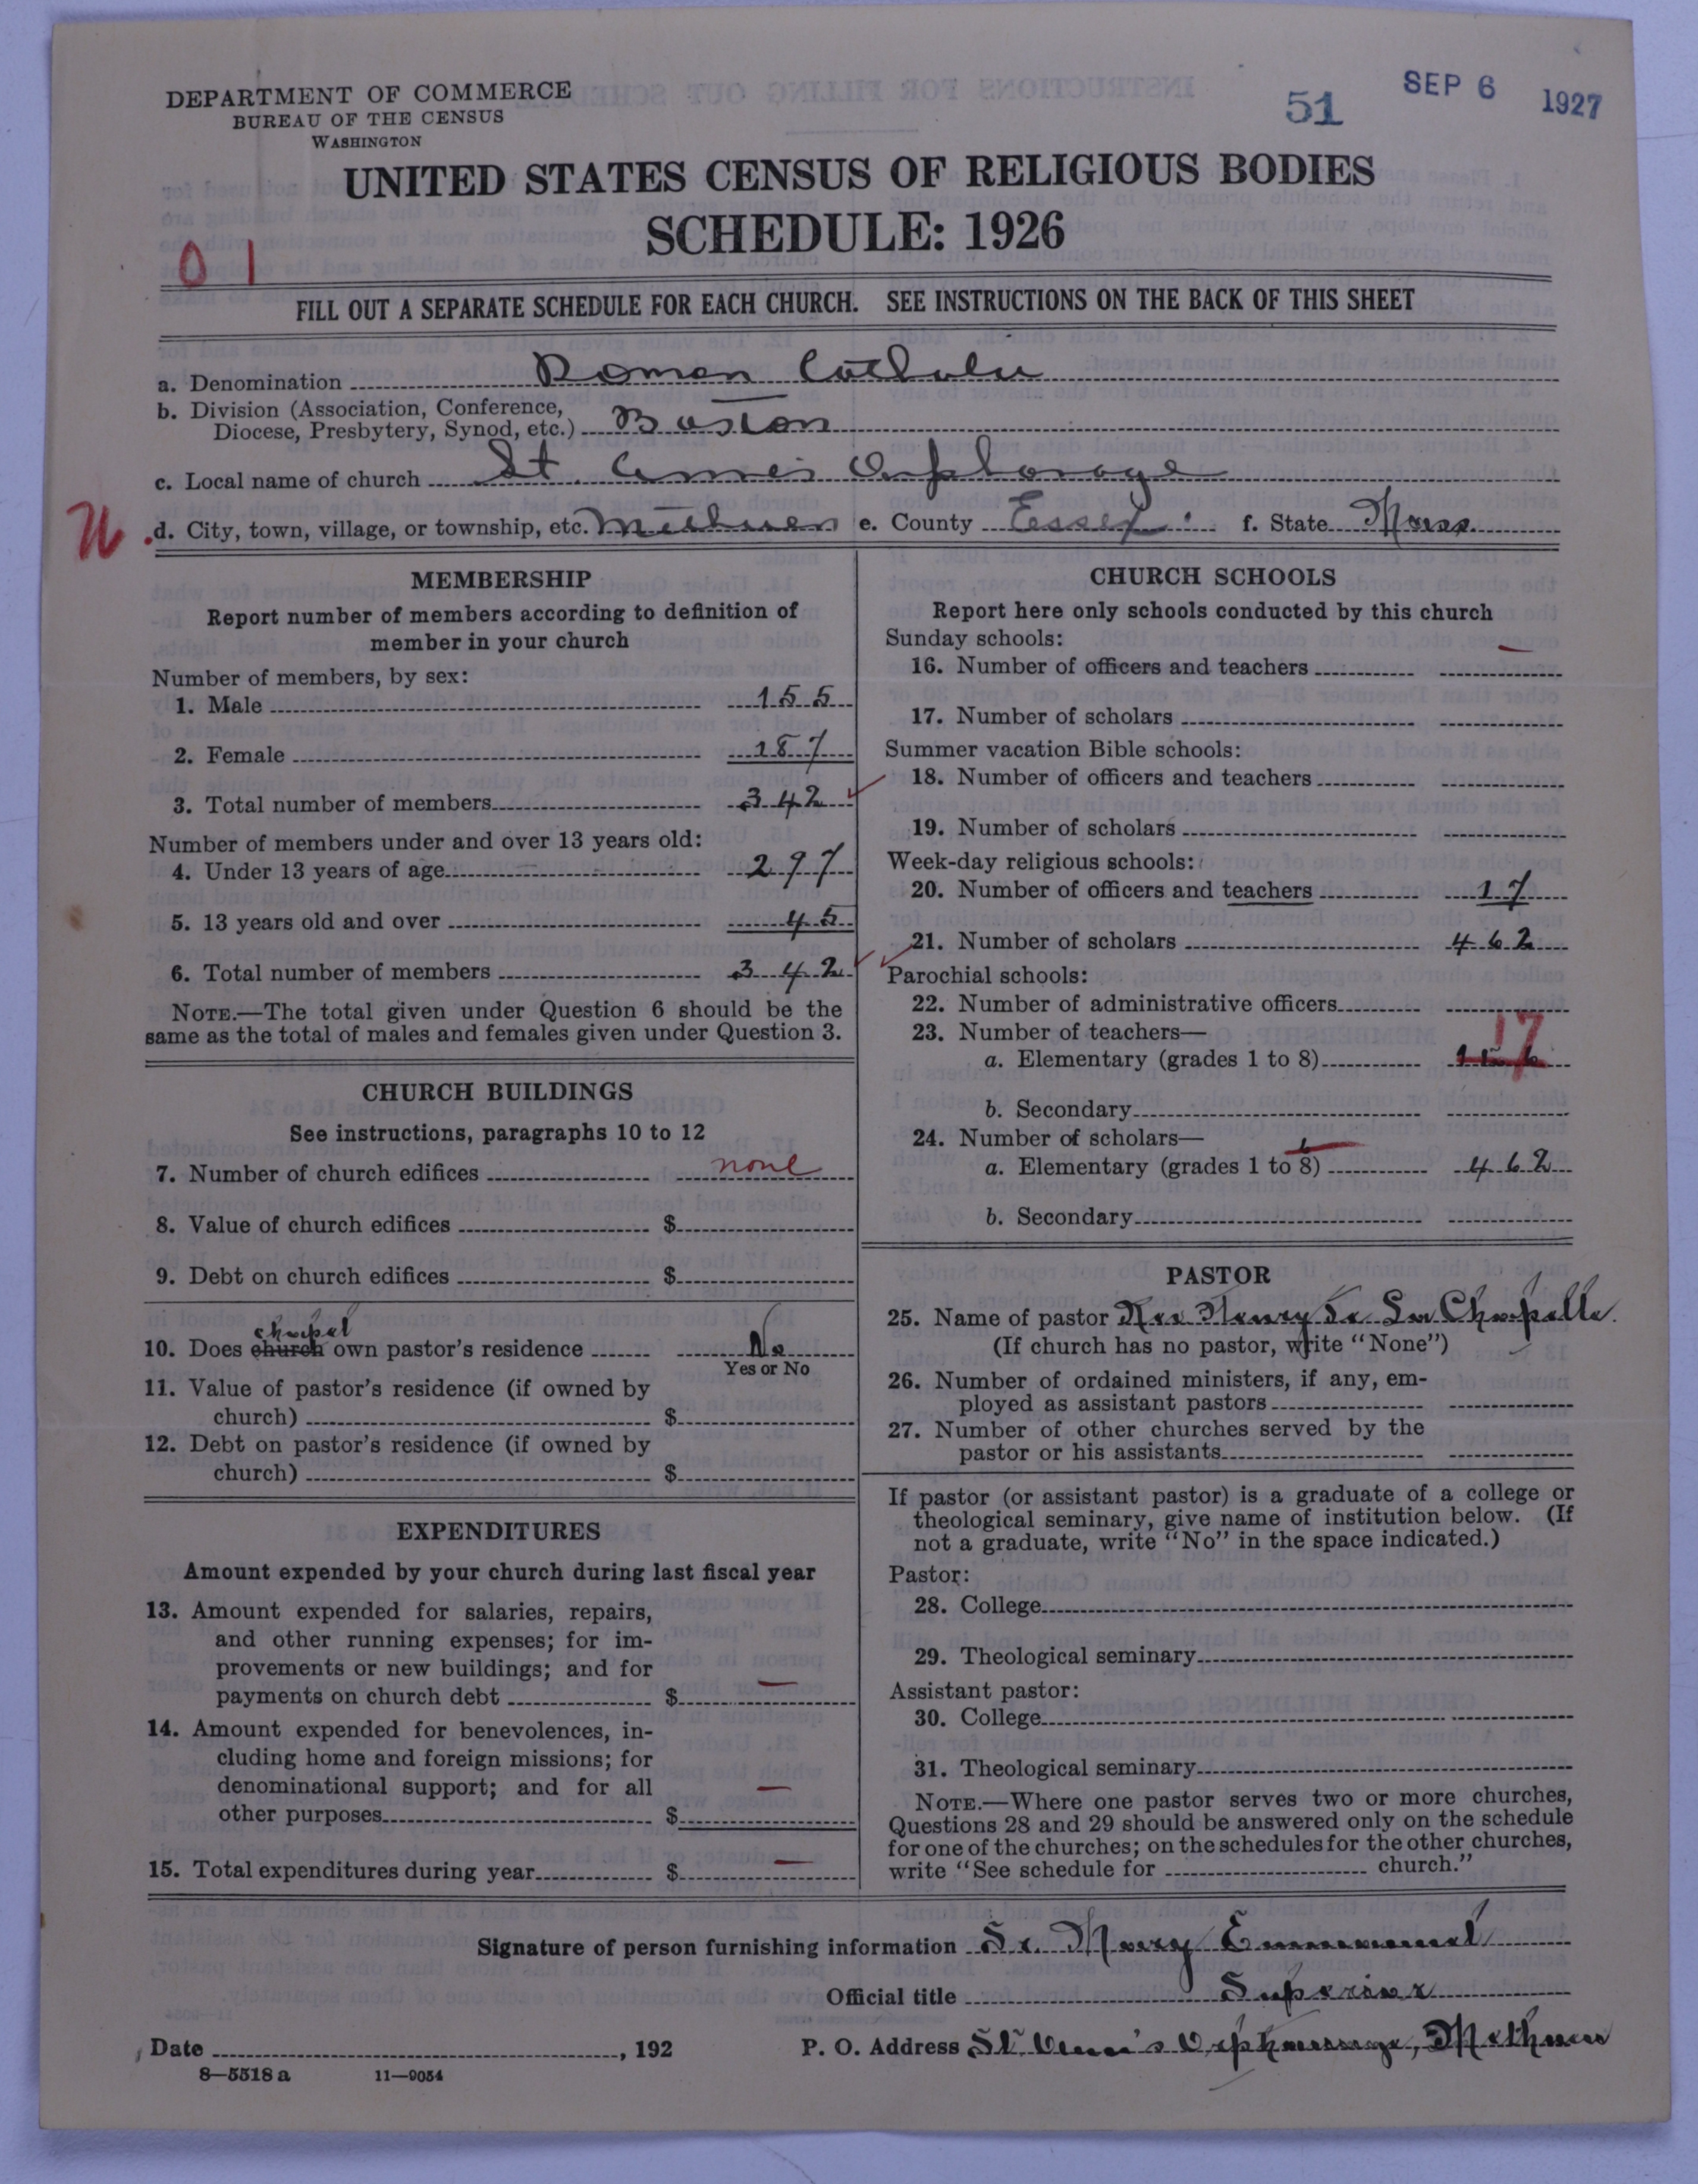 DEPARTMENT OF COMMERCE
BUREAU OF THE CENSUS
WASHINGTON
51 SEP 6 1927
UNITED STATES CENSUS OF RELIGIOUS BODIES
SCHEDULE: 1926
0 1
FILL OUT A SEPARATE SCHEDULE FOR EACH CHURCH. SEE INSTRUCTIONS ON THE BACK OF THIS SHEET
a. Denomination Roman Catholic
b. Division (Association, Conference,
Diocese, Presbytery, Synod, etc.) Boston
c. Local name of church St. Anne's Orphanage
d. City, town, village, or township, etc. Methuen e. County Essex f. State Mass.
MEMBERSHIP
Report number of members according to definition of
member in your church
Number of members, by sex:
1. Male 155
2. Female 187
3. Total number of members 342
Number of members under and over 13 years old:
4. Under 13 years of age 297
5. 13 years old and over 45
6. Total number of members 342
NOTE.—The total given under Question 6 should be the
same as the total of males and females given under Question 3.
CHURCH BUILDINGS
See instructions, paragraphs 10 to 12
7. Number of church edifices none
8. Value of church edifices $
9. Debt on church edifices $
chapel
10. Does church own pastor's residence No
Yes or No
11. Value of pastor's residence (if owned by
church) $
12. Debt on pastor's residence (if owned by
church) $
EXPENDITURES
Amount expended by your church during last fiscal year
13. Amount expended for salaries, repairs,
and other running expenses; for im-
provements or new buildings; and for
payments on church debt $ —
14. Amount expended for benevolences, in-
cluding home and foreign missions; for
denominational support; and for all
other purposes $ —
15. Total expenditures during year $ —
CHURCH SCHOOLS
Report here only schools conducted by this church
Sunday schools:
16. Number of officers and teachers —
17. Number of scholars
Summer vacation Bible schools:
18. Number of officers and teachers
19. Number of scholars
Week-day religious schools:
20. Number of officers and teachers 17
21. Number of scholars 462
Parochial schools:
22. Number of administrative officers
23. Number of teachers—
a. Elementary (grades 1 to 8) 17
b. Secondary
24. Number of scholars—
6
a. Elementary (grades 1 to 8) 462
b. Secondary
PASTOR
25. Name of pastor Rev Henry De La Chapelle.
(If church has no pastor, write "None")
26. Number of ordained ministers, if any, em-
ployed as assistant pastors
27. Number of other churches served by the
pastor or his assistants
If pastor (or assistant pastor) is a graduate of a college or
theological seminary, give name of institution below. (If
not a graduate, write "No" in the space indicated.)
Pastor:
28. College
29. Theological seminary
Assistant pastor:
30. College
31. Theological seminary
NOTE.—Where one pastor serves two or more churches,
Questions 28 and 29 should be answered only on the schedule
for one of the churches; on the schedules for the other churches,
write "See schedule for church."
Signature of person furnishing information Sr. Mary Emmanuel
Official title Superior
Date , 192 P. O. Address St. Anne's Orphanage, Methuen
8—5518 a 11—9054